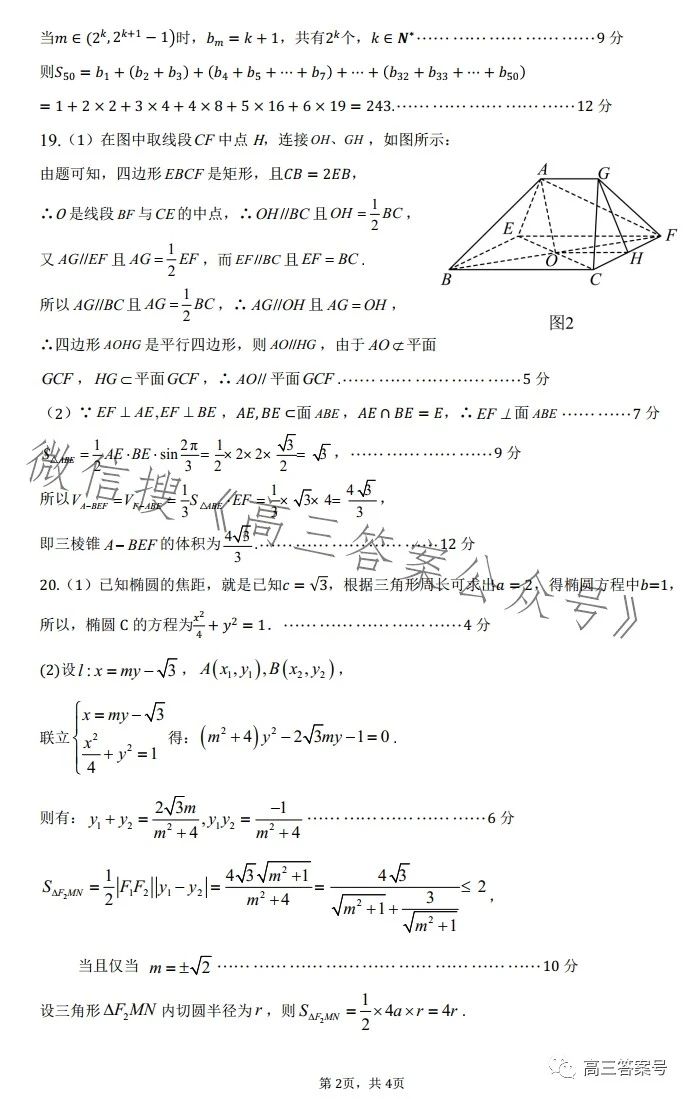 当m ∈ (2^k, 2^{k+1} − 1)时，b_m = k + 1，共有2^k个，k ∈ N*……………………………9 分
则S_50 = b_1 + (b_2 + b_3) + (b_4 + b_5 + ⋯ + b_7) + ⋯ + (b_32 + b_33 + ⋯ + b_50)
= 1 + 2 × 2 + 3 × 4 + 4 × 8 + 5 × 16 + 6 × 19 = 243.……………………………12 分
19.（1）在图中取线段CF中点 H，连接OH、GH，如图所示：
由题可知，四边形EBCF是矩形，且CB = 2EB，
∴O是线段BF与CE的中点，∴OH//BC且OH = 1/2 BC，
又AG//EF且AG = 1/2 EF，而EF//BC且EF = BC.
所以AG//BC且AG = 1/2 BC，∴AG//OH且AG = OH，
∴四边形AOHG是平行四边形，则AO//HG，由于AO ⊄ 平面
GCF，HG ⊂ 平面GCF，∴AO//平面GCF.……………………………5 分
A
G
E
F
O
H
B
C
图2
（2）∵EF ⊥ AE,EF ⊥ BE，AE,BE ⊂面ABE，AE ∩ BE = E，∴EF ⊥面ABE…………7 分
S_△ABE = 1/2 AE·BE·sin 2π/3 = 1/2 × 2 × 2 × √3/2 = √3，……………………………9 分
所以V_{A−BEF} = V_{F−ABE} = 1/3 S_△ABE · EF = 1/3 × √3 × 4 = 4√3/3，
即三棱锥A − BEF的体积为4√3/3.……………………………12 分
20.（1）已知椭圆的焦距，就是已知c = √3，根据三角形周长可求出a = 2，得椭圆方程中b=1，
所以，椭圆 C 的方程为x²/4 + y² = 1.……………………………4 分
(2)设l : x = my − √3，A(x_1, y_1), B(x_2, y_2)，
联立{x = my − √3, x²/4 + y² = 1 得：(m² + 4)y² − 2√3my − 1 = 0.
则有：y_1 + y_2 = 2√3m/(m² + 4), y_1y_2 = −1/(m² + 4)……………………………6 分
S_{ΔF_2MN} = 1/2 |F_1F_2||y_1 − y_2| = 4√3√(m² + 1)/(m² + 4) = 4√3/(√(m² + 1) + 3/√(m² + 1)) ≤ 2，
当且仅当 m = ±√2……………………………10 分
设三角形ΔF_2MN内切圆半径为r，则S_{ΔF_2MN} = 1/2 × 4a × r = 4r.
微信搜《高三答案公众号》
高三答案号
第 2页，共 4页